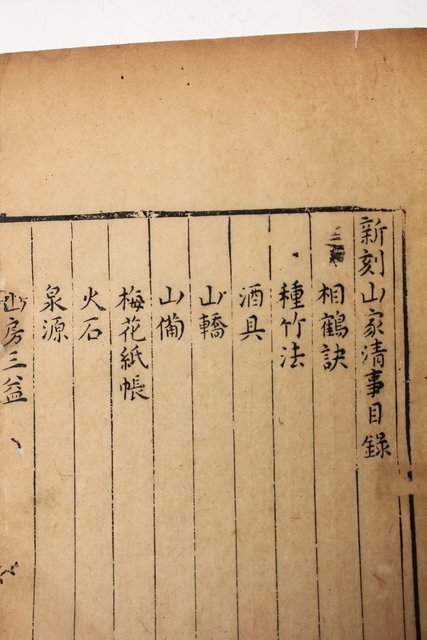 新刻山家清事目錄
相鶴訣
種竹法
酒具
山轎
山備
梅花紙帳
火石
泉源
山房三益